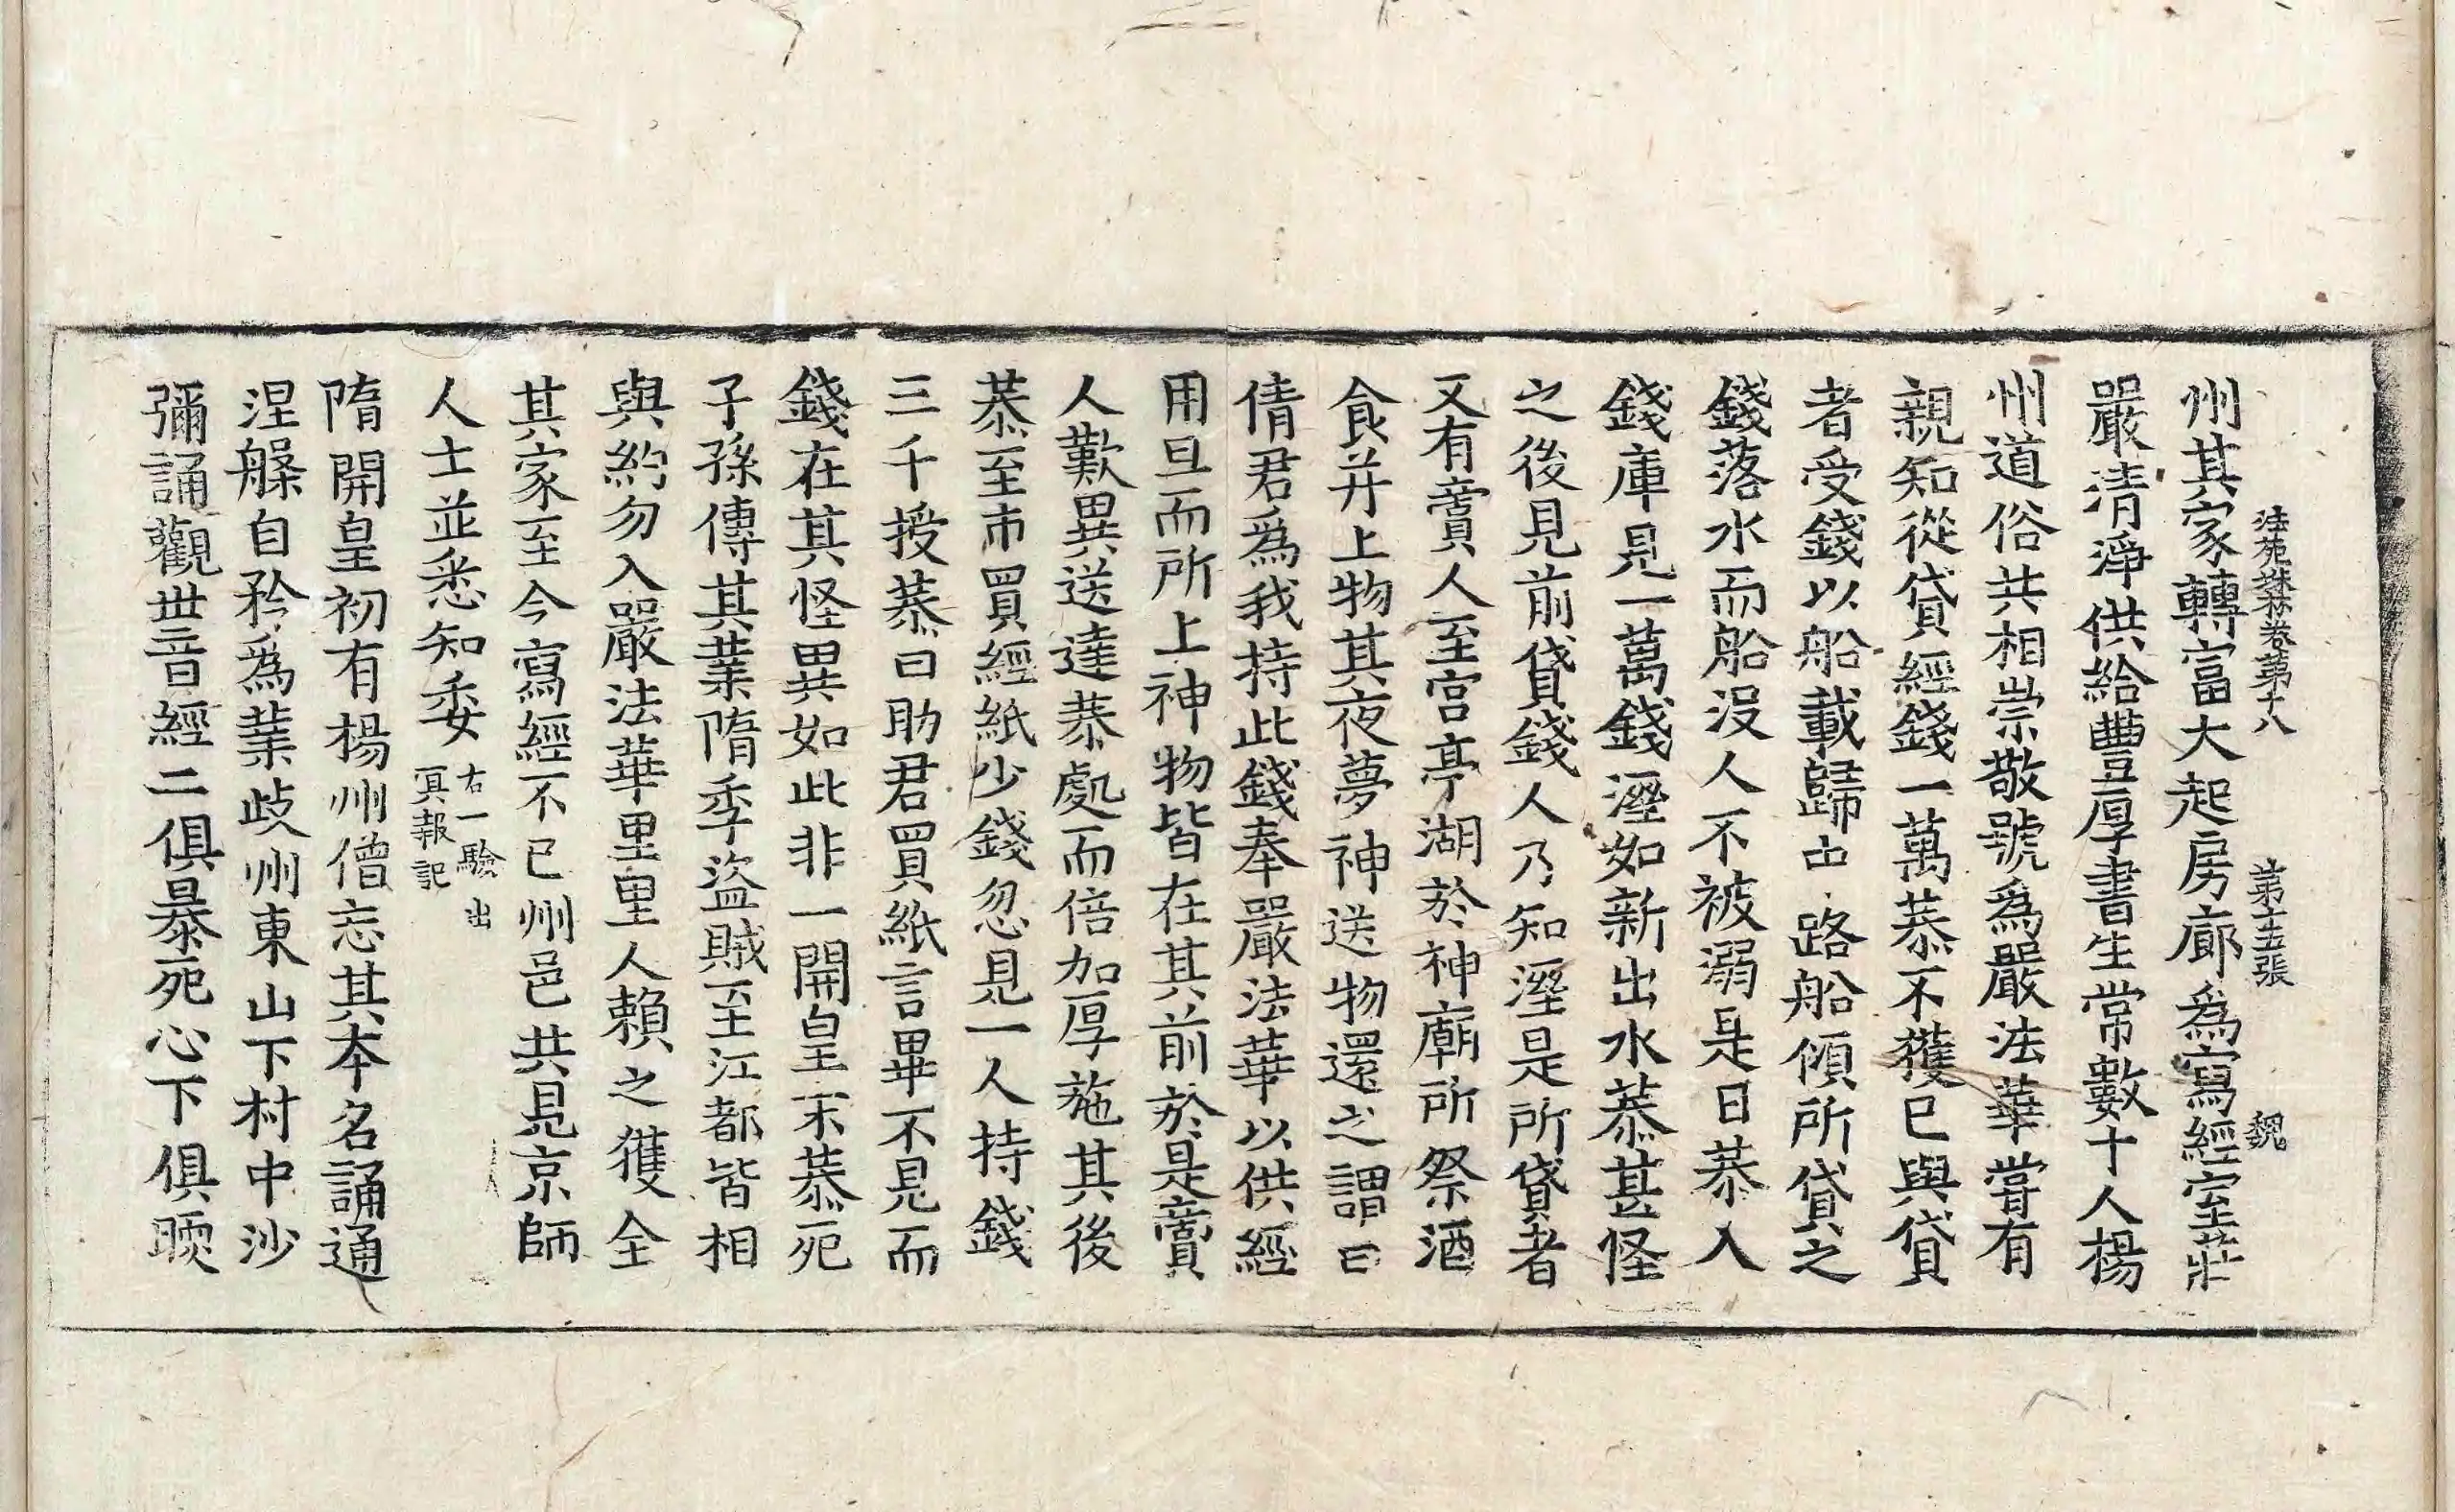 法苑珠林卷第十八　第十五張　魏
州其家轉富大起房廊爲寫經室莊
嚴清淨供給豐厚書生常數十人楊
州道俗共相崇敬號爲嚴法華嘗有
親知從貸經錢一萬恭不獲已與貸
者受錢以船載歸中路船傾所貸之
錢落水而船没人不被溺是日恭入
錢庫見一萬錢溼如新出水恭甚怪
之後見前貸錢人乃知溼是所貸者
又有賣人至宮亭湖於神廟所祭酒
食并上物其夜夢神送物還之謂曰
倩君爲我持此錢奉嚴法華以供經
用旦而所上神物皆在其前於是賣
人歎異送達恭處而倍加厚施其後
恭至市買經紙少錢忽見一人持錢
三千授恭曰助君買紙言畢不見而
錢在其怪異如此非一開皇末恭死
子孫傳其業隋季盜賊至江都皆相
與約勿入嚴法華里里人賴之獲全
其家至今寫經不已州邑共見京師
人士並悉知委右一驗出冥報記
隋開皇初有楊州僧忘其本名誦通
涅槃自矜爲業歧州東山下村中沙
彌誦觀世音經二俱暴死心下俱暖